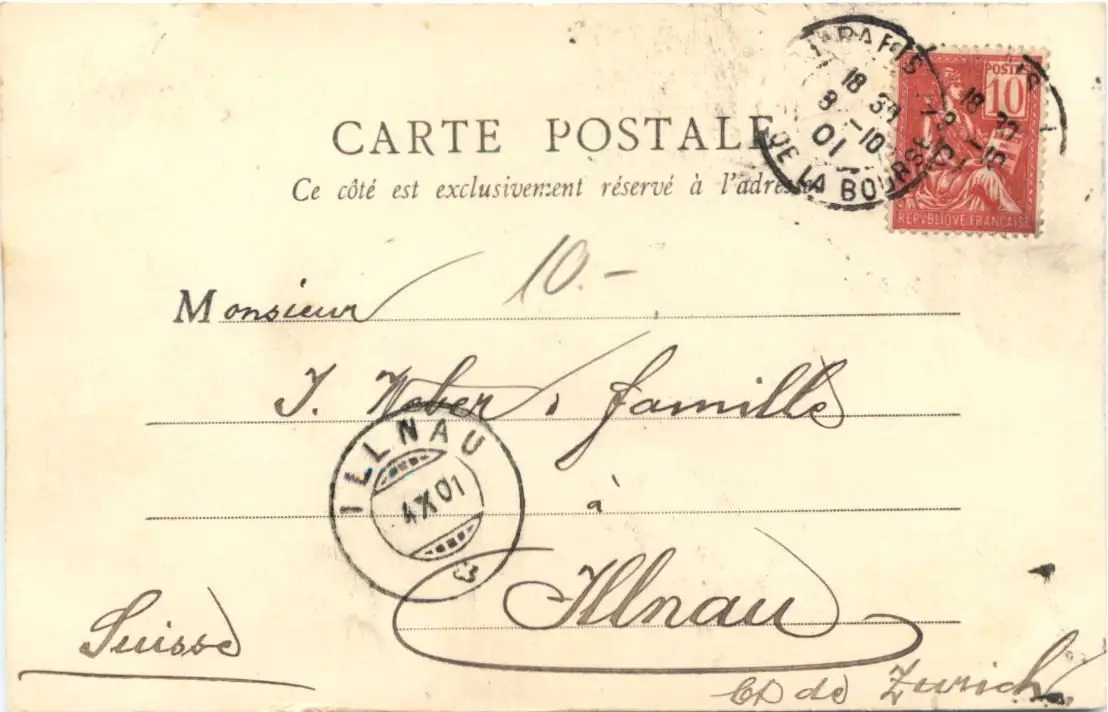 CARTE POSTALE
Ce côté est exclusivement réservé à l'adresse
PARIS
18 30
3 -10
01
DE LA BOURSE
POSTES
10
REPVBLIQVE FRANÇAISE
10.-
Monsieur
J. Weber & famille
ILLNAU
4 X 01
à
Illnau
Suisse
Ct de Zurich